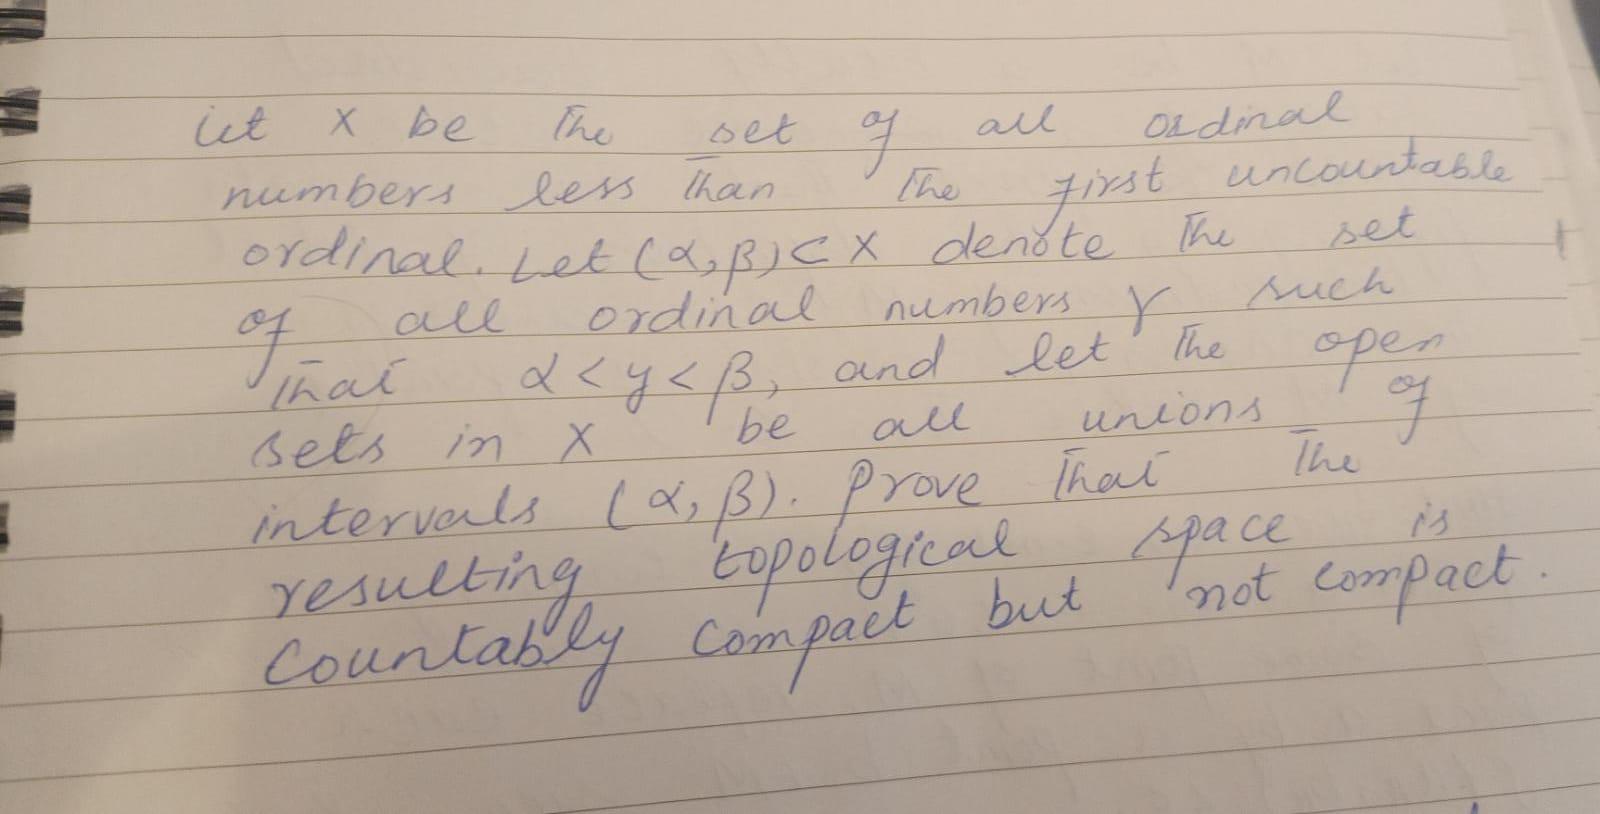 Let X be the set of all ordinal
numbers less than the first uncountable
ordinal. Let (α, β) ⊂ X denote the set
of all ordinal numbers γ such
that α < y < β, and let the open
sets in X be all unions of
intervals (α, β). Prove that the
resulting topological space is
Countably compact but not compact.